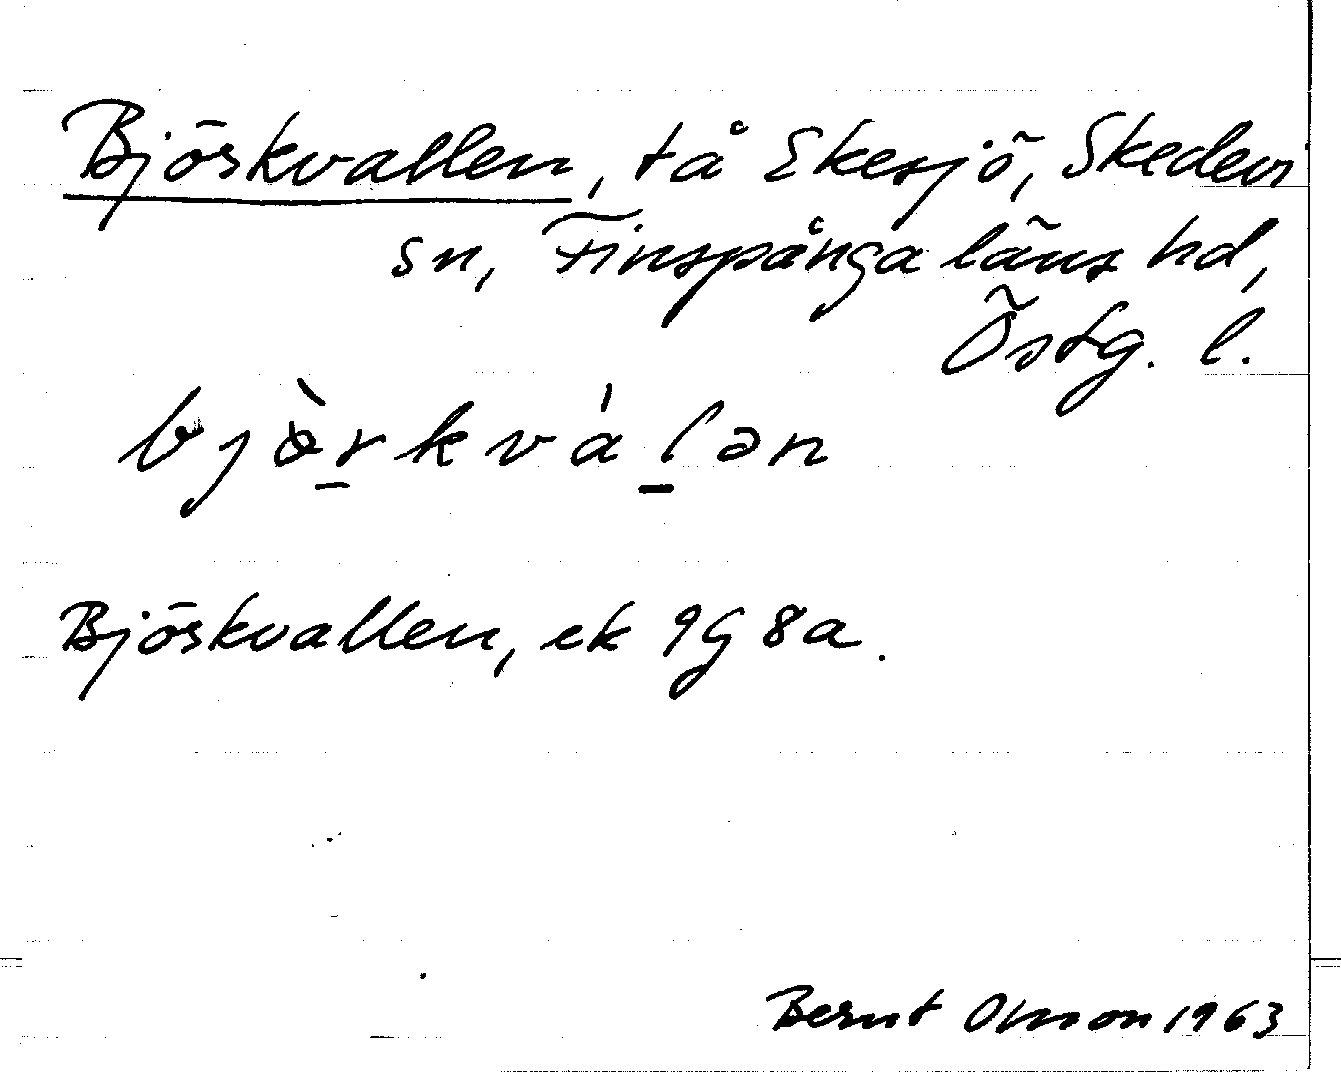 Björkvallen, tå Ekesjö, Skedevi
sn, Finspånga läns hd,
Östg. l.
bjɵ̀rkválən
Björkvallen, ek 9G 8a.
Bernt Olsson 1963